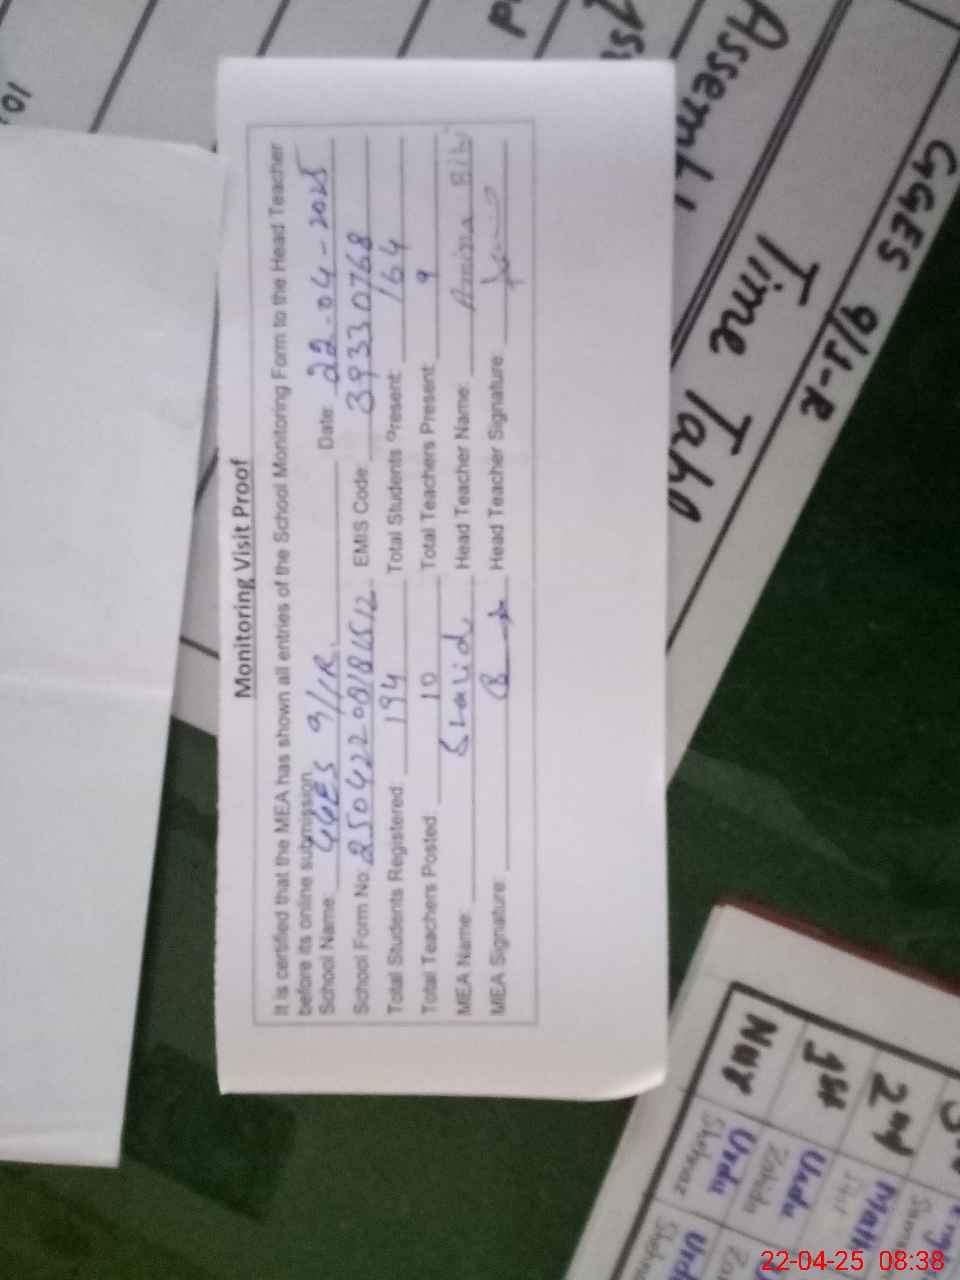 Monitoring Visit Proof
It is certified that the MEA has shown all entries of the School Monitoring Form to the Head Teacher
before its online submission.
School Name: GGES 9/1R. Date: 22-04-2025
School Form No: 2504220818512 EMIS Code: 39330768
Total Students Registered: 194 Total Students Present: 164
Total Teachers Posted: 10 Total Teachers Present: 9
MEA Name: Head Teacher Name: Amina Bibi
MEA Signature: Head Teacher Signature:
GGES 9/1-R
Time
Nur
1st
2nd
Urdu
Urdu
Math
22-04-25 08:38